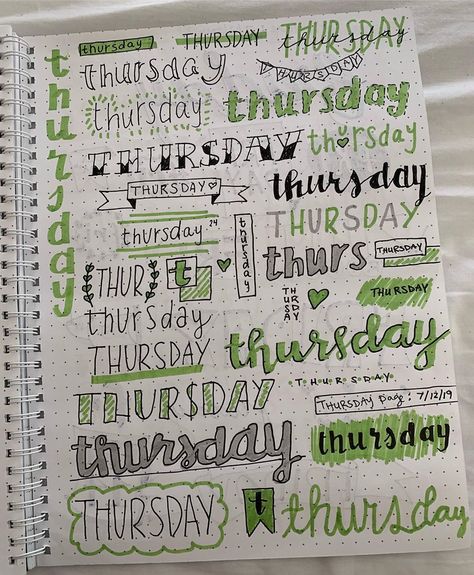 thursday
thursday
THURSDAY
THURSDAY
thursday
thursday
THURSDAY
thursday
thursday
THURSDAY
thursday
THURSDAY
thursday
thursday 24
thursday
THURSDAY
thurs
THURSDAY
THUR
t
THURSDAY
THURSDAY
thursday
thursday
THURSDAY
THURSDAY
THURSDAY
THURSDAY page: 7/12/19
thursday
thursday
THURSDAY
t
thursday